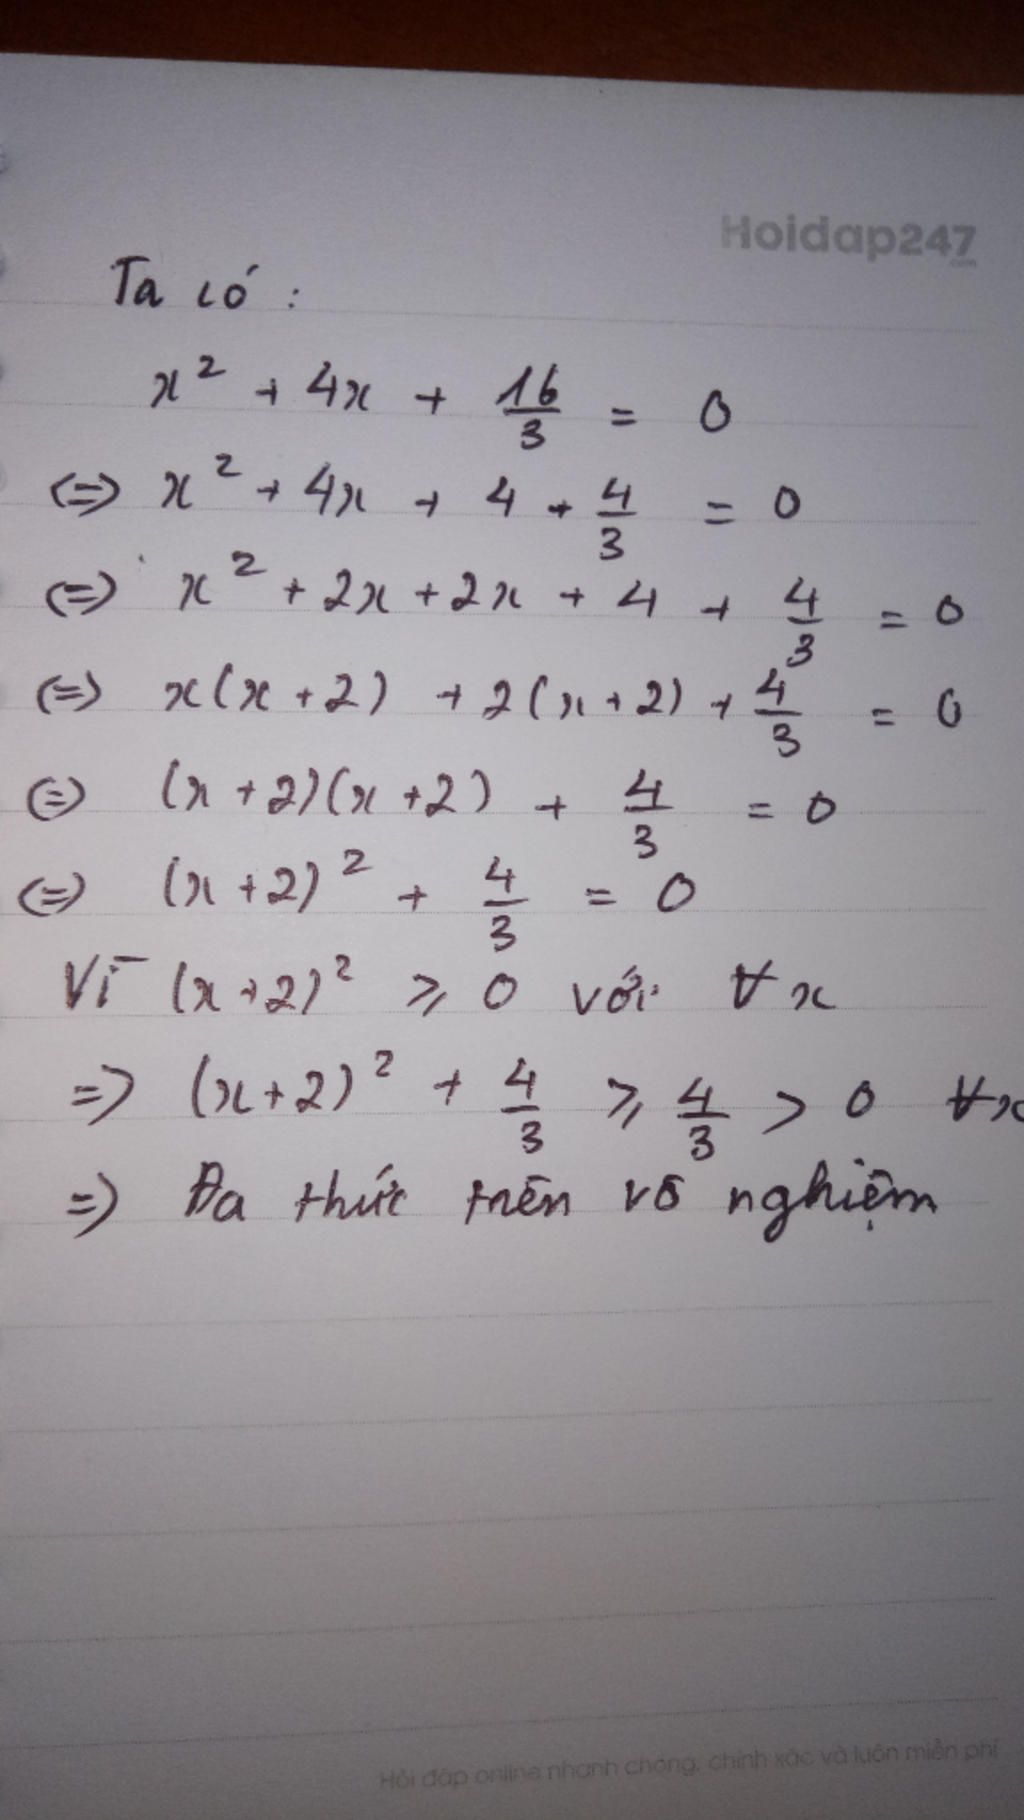 Hoidap247
.com
Ta có :
x² + 4x + 16/3 = 0
(=) x² + 4x + 4 + 4/3 = 0
(=) x² + 2x + 2x + 4 + 4/3 = 0
(=) x(x+2) + 2(x+2) + 4/3 = 0
(=) (x+2)(x+2) + 4/3 = 0
(=) (x+2)² + 4/3 = 0
Vì (x+2)² ≥ 0 với ∀x
=) (x+2)² + 4/3 ≥ 4/3 > 0 ∀x
=) Đa thức trên vô nghiệm
Hỏi đáp online nhanh chóng, chính xác và luôn miễn phí